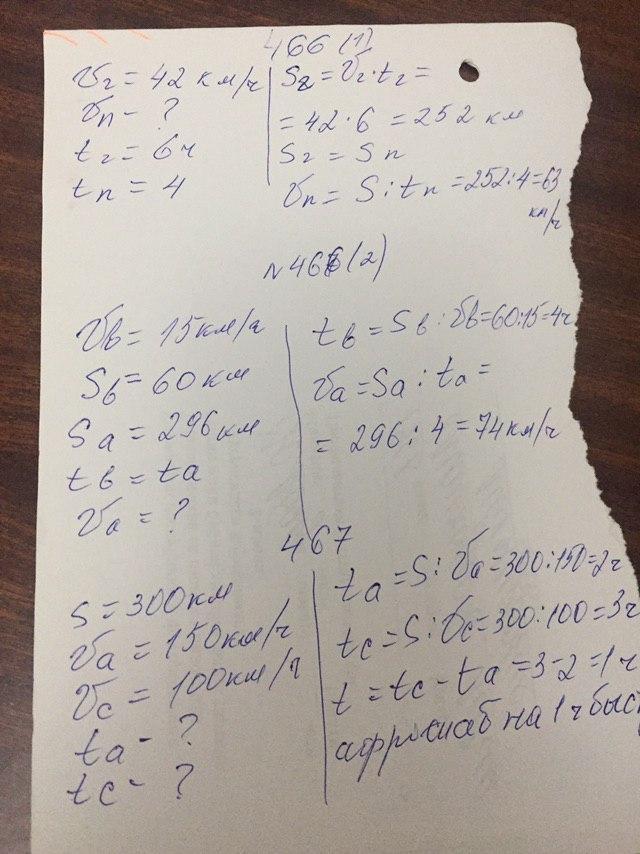 466 (1)
Vг = 42 км/ч
Vп - ?
tг = 6 ч
tп = 4
Sг = Vг · tг =
= 42 · 6 = 252 км
Sг = Sп
Vп = S : tп = 252 : 4 = 63
км/ч
№ 466 (2)
Vв = 15 км/ч
Sв = 60 км
Sа = 296 км
tв = tа
Vа = ?
tв = Sв : Vв = 60 : 15 = 4 ч
Vа = Sа : tа =
= 296 : 4 = 74 км/ч
467
S = 300 км
Vа = 150 км/ч
Vс = 100 км/ч
tа - ?
tс - ?
tа = S : Vа = 300 : 150 = 2 ч
tс = S : Vс = 300 : 100 = 3 ч
t = tс - tа = 3 - 2 = 1 ч
афросиаб на 1 ч быст